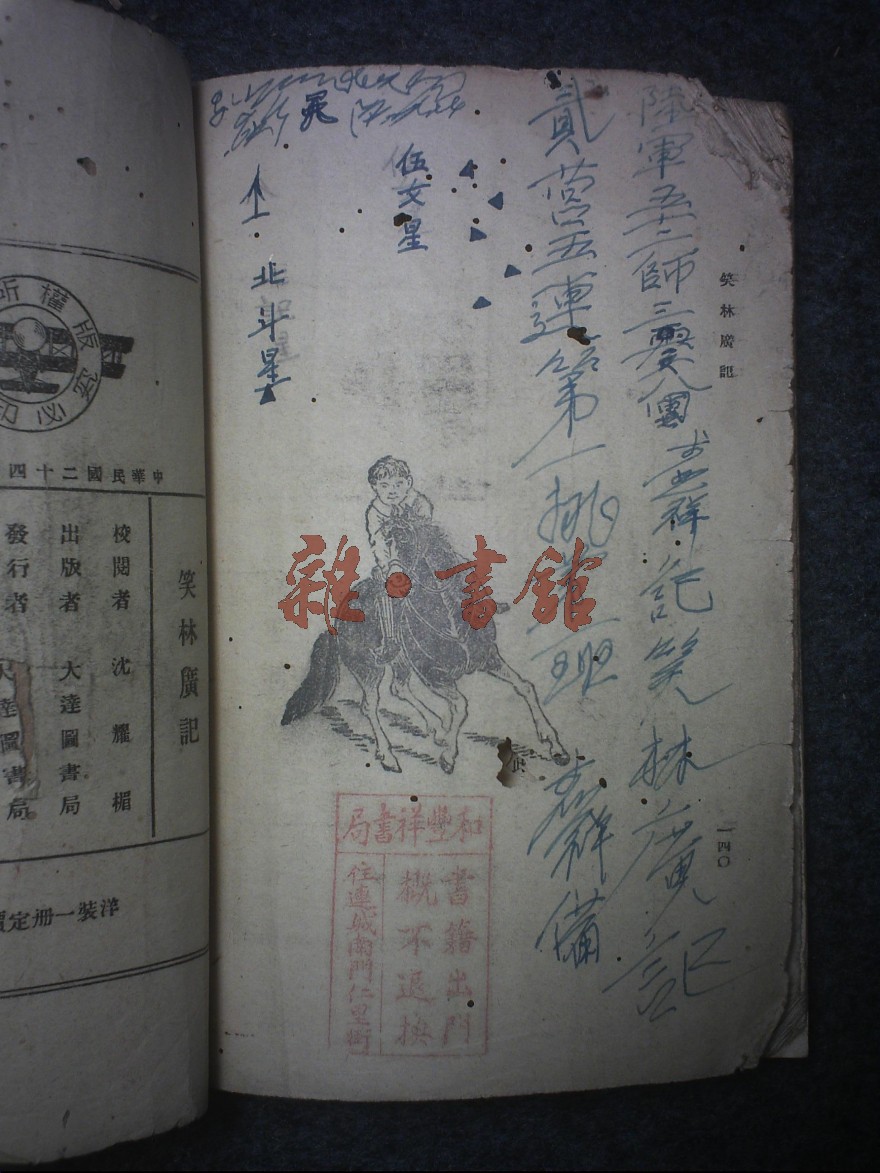 笑林廣記
一四〇
陸軍五十二師三零八團 祥記笑林廣記
貳營五連第一排 班 祥備
伍女星
北斗星
雜·書館
和豐祥書局
書籍出門
概不退換
住連城南門仁里街
版權所
究必印
中華民國二十四
笑林廣記
校閱者 沈耀楣
出版者 大達圖書局
發行者 大達圖書局
洋裝一册定